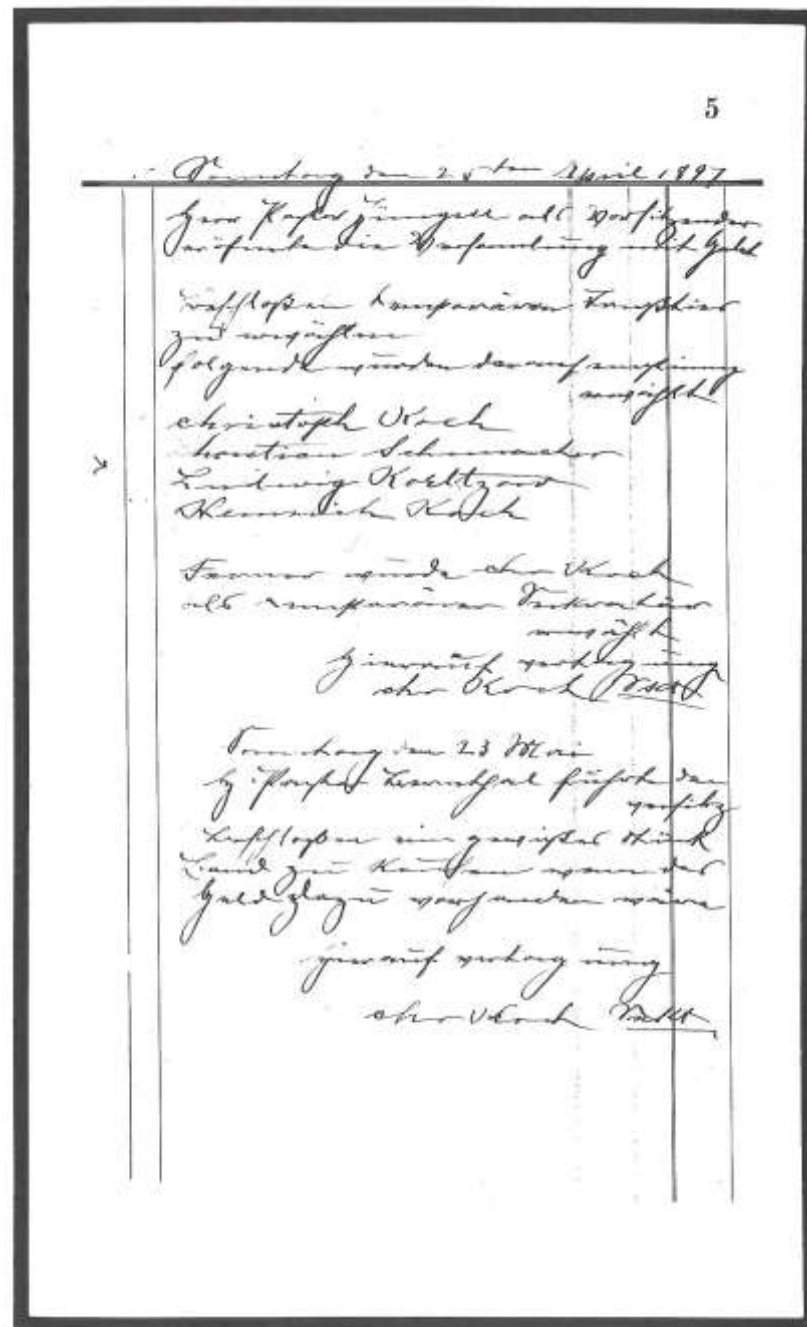 5
Sonntag den 25ten April 1897
Herr Pastor als Vorsitzender
eröfnete die Versamlung mit Gebet
Beschloßen temporären Trusties
zu erwählen
folgende wurden darauf
erwählt
Christoph Koch
Schumacher
Ludwig
Heinrich Koch
Ferner wurde Chr Koch
als temporärer Sekretär
erwählt
Hierauf vertagung
Chr Koch
Sonntag den 23 Mai
H Pastor führte den
vorsitz
Beschloßen ein gewißes stück
Land zu kaufen wenn das
Geld dazu vorhanden wäre
Hierauf vertagung
Chr Koch